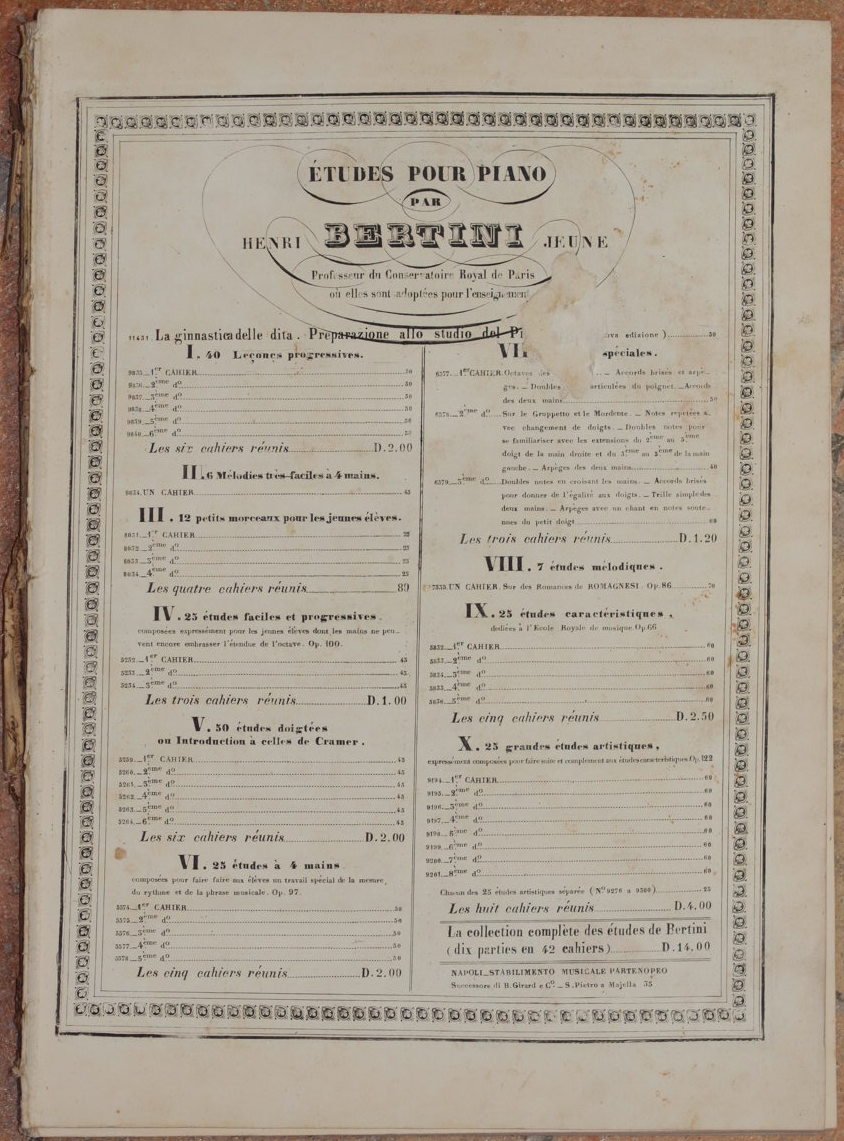 ÉTUDES POUR PIANO
PAR
HENRI BERTINI JEUNE
Professeur du Conservatoire Royal de Paris
où elles sont adoptées pour l'enseignement
La ginnastica delle dita. Preparazione allo studio del edizione) 50
I. 40 Leçons progressives.
1er CAHIER 50
2ème do 50
3ème do 50
4ème do 50
5ème do 50
6ème do 50
Les six cahiers réunis D.2.00
II. 6 Mélodies très-faciles à 4 mains.
UN CAHIER 45
III. 12 petits morceaux pour les jeunes élèves.
1er CAHIER 25
2ème do 25
3ème do 25
4ème do 25
Les quatre cahiers réunis 80
IV. 25 études faciles et progressives.
composées expressément pour les jeunes élèves dont les mains ne peu-
vent encore embrasser l'étendue de l'octave. Op. 100.
5252_1er CAHIER 45
5253_2ème do 45
5254_3ème do 45
Les trois cahiers réunis D.1.00
V. 50 études doigtées
ou Introduction à celles de Cramer.
5259_1er CAHIER 45
5260_2ème do 45
5261_3ème do 45
5262_4ème do 45
5263_5ème do 45
5264_6ème do 45
Les six cahiers réunis D.2.00
VI. 25 études à 4 mains
composées pour faire faire aux élèves un travail spécial de la mesure,
du rythme et de la phrase musicale. Op. 97.
5574_1er CAHIER 50
5575_2ème do 50
5576_3ème do 50
5577_4ème do 50
5578_5ème do 50
Les cinq cahiers réunis D.2.00
spéciales.
6577_1er CAHIER. Octaves des _ Accords brisés et arpè-
ges. _ Doubles articulées du poignet. _Accords
des deux mains 50
6578_2ème do Sur le Gruppetto et le Mordente. _ Notes repetées a-
vec changement de doigts. _ Doubles notes pour
se familiariser avec les extensions du 2ème au 5ème
doigt de la main droite et du 5ème au 2ème de la main
gauche. _ Arpèges des deux mains 40
6579_3ème do Doubles notes en croisant les mains. _ Accords brisés
pour donner de l'égalité aux doigts. _ Trille simple des
deux mains. _ Arpèges avec un chant en notes soute-
nues du petit doigt 60
Les trois cahiers réunis D.1.20
VIII. 7 études mélodiques.
UN CAHIER. Sur des Romances de ROMAGNESI. Op. 86 70
IX. 25 études caractéristiques,
dediées à l'Ecole Royale de musique Op.66
1er CAHIER 60
2ème do 60
3ème do 60
4ème do 60
5ème do 60
Les cinq cahiers réunis D.2.50
X. 25 grandes études artistiques,
expressément composées pour faire suite et complement aux études caractéristiques Op. 122
9194_1er CAHIER 60
9195_2ème do 60
9196_3ème do 60
9197_4ème do 60
9198_5ème do 60
9199_6ème do 60
9200_7ème do 60
9201_8ème do 60
Chacun des 25 études artistiques séparée (No 9276 a 9300) 25
Les huit cahiers réunis D.4.00
La collection complète des études de Bertini
(dix parties en 42 cahiers) D.14.00
NAPOLI_STABILIMENTO MUSICALE PARTENOPEO
Successore di B. Girard e Co _ S. Pietro a Majella 33